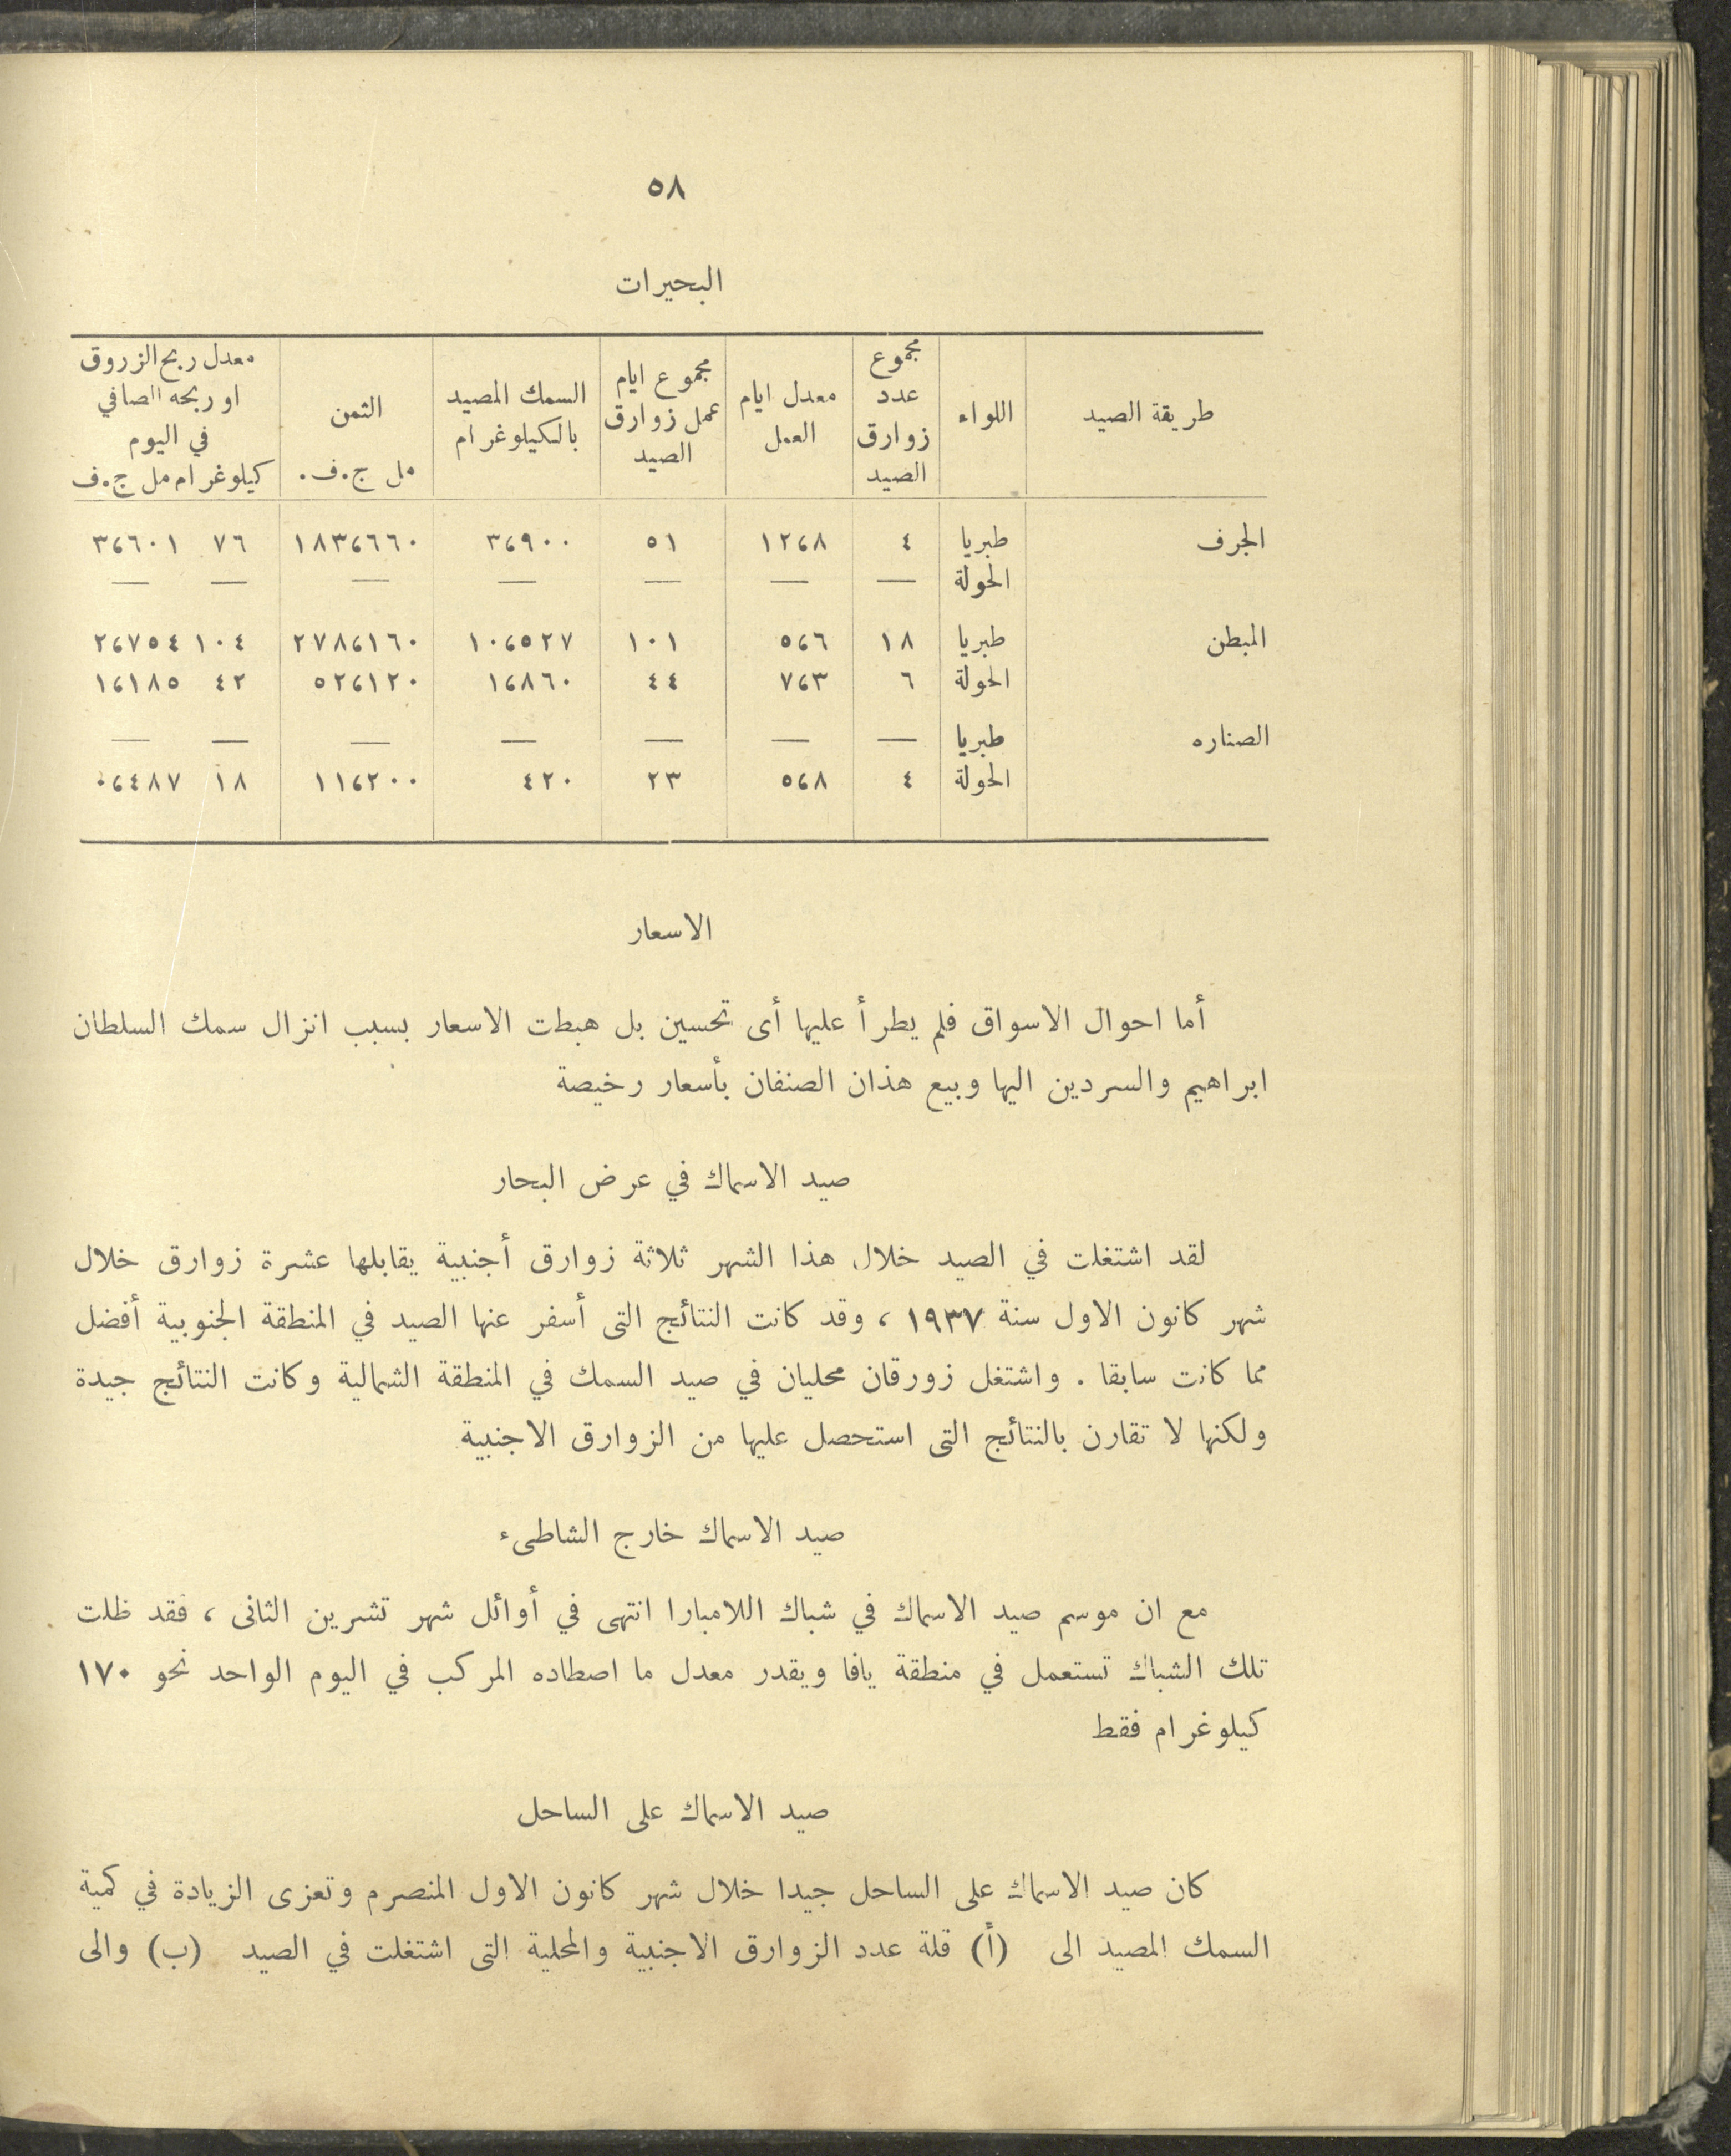 ٥٨
البحيرات
طريقة الصيد | اللواء | مجموع عدد زوارق الصيد | معدل ايام العمل | مجموع ايام عمل زوارق الصيد | السمك المصيد بالكيلوغرام | الثمن مل ج.ف. | معدل ربح الزروق او ربحه الصافي في اليوم كيلوغرام مل ج.ف
الجرف | طبريا | ٤ | ١٢،٨ | ٥١ | ٣،٩٠٠ | ١٨٣،٦٦٠ | ٧٦ | ٣،٦٠١
الحولة | — | — | — | — | — | — | —
المبطن | طبريا | ١٨ | ٥،٦ | ١٠١ | ١٠،٥٢٧ | ٢٧٨،١٦٠ | ١٠٤ | ٢،٧٥٤
الحولة | ٦ | ٧،٣ | ٤٤ | ١،٨٦٠ | ٥٢،١٢٠ | ٤٢ | ١،١٨٥
الصناره | طبريا | — | — | — | — | — | — | —
الحولة | ٤ | ٥،٨ | ٢٣ | ٤٢٠ | ١١،٢٠٠ | ١٨ | ٠،٤٨٧
الاسعار
أما احوال الاسواق فلم يطرأ عليها أى تحسين بل هبطت الاسعار بسبب انزال سمك السلطان
ابراهيم والسردين اليها وبيع هذان الصنفان بأسعار رخيصة
صيد الاسماك في عرض البحار
لقد اشتغلت في الصيد خلال هذا الشهر ثلاثة زوارق أجنبية يقابلها عشرة زوارق خلال
شهر كانون الاول سنة ١٩٣٧ ، وقد كانت النتائج التى أسفر عنها الصيد في المنطقة الجنوبية أفضل
مما كانت سابقا . واشتغل زورقان محليان في صيد السمك في المنطقة الشمالية وكانت النتائج جيدة
ولكنها لا تقارن بالنتائج التى استحصل عليها من الزوارق الاجنبية
صيد الاسماك خارج الشاطىء
مع ان موسم صيد الاسماك في شباك اللامبارا انتهى في أوائل شهر تشرين الثانى ، فقد ظلت
تلك الشباك تستعمل في منطقة يافا ويقدر معدل ما اصطاده المركب في اليوم الواحد نحو ١٧٠
كيلوغرام فقط
صيد الاسماك على الساحل
كان صيد الاسماك على الساحل جيدا خلال شهر كانون الاول المنصرم وتعزى الزيادة في كمية
السمك المصيد الى (أ) قلة عدد الزوارق الاجنبية والمحلية التى اشتغلت في الصيد (ب) والى